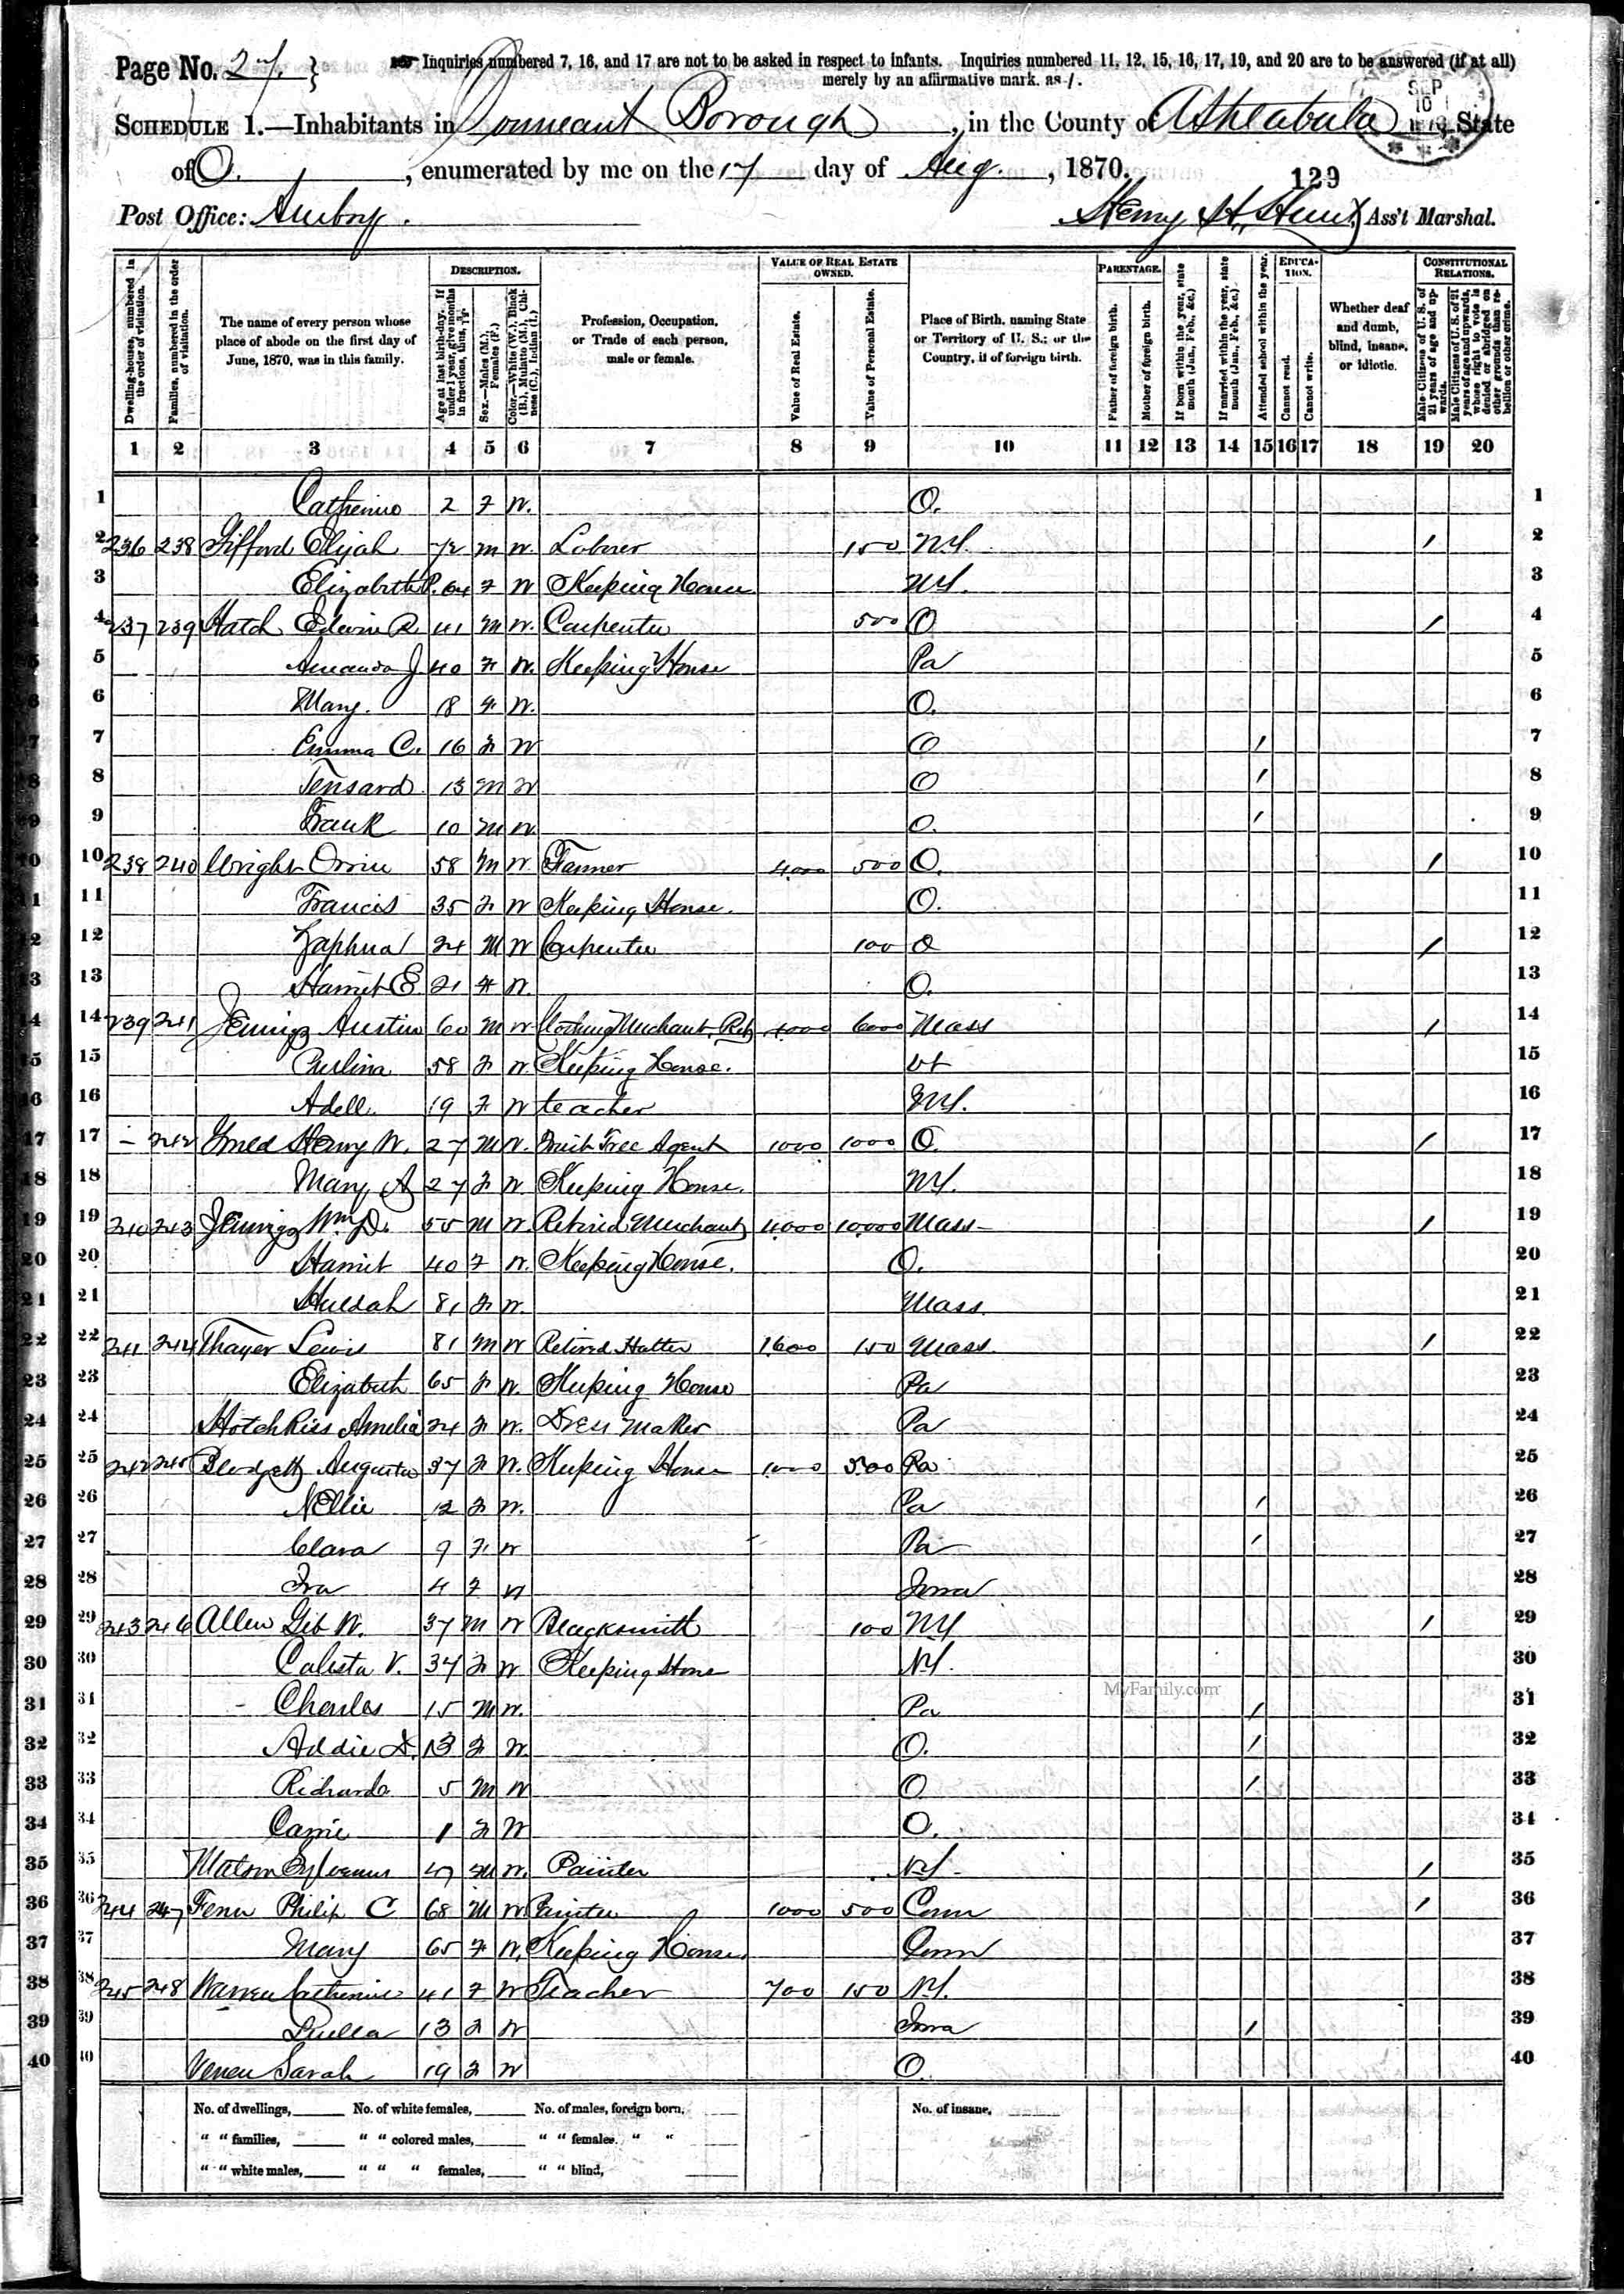 Page No. 27 } Inquiries numbered 7, 16, and 17 are not to be asked in respect to infants. Inquiries numbered 11, 12, 15, 16, 17, 19, and 20 are to be answered (if at all)
merely by an affirmative mark, as /.
SCHEDULE 1.—Inhabitants in Conneaut Borough, in the County of Ashtabula, State
SEP
10
of O., enumerated by me on the 17 day of Aug., 1870.
129
Post Office: Amboy. Henry H. Hunt, Ass't Marshal.
Dwelling-houses, numbered in the order of visitation.
Families, numbered in the order of visitation.
The name of every person whose place of abode on the first day of June, 1870, was in this family.
DESCRIPTION.
Age at last birth-day. If under 1 year, give months in fractions, thus, 3/12
Sex.—Males (M.), Females (F.)
Color.—White (W.), Black (B.), Mulatto (M.), Chinese (C.), Indian (I.)
Profession, Occupation, or Trade of each person, male or female.
VALUE OF REAL ESTATE OWNED.
Value of Real Estate.
Value of Personal Estate.
Place of Birth, naming State or Territory of U. S.; or the Country, if of foreign birth.
PARENTAGE.
Father of foreign birth.
Mother of foreign birth.
If born within the year, state month (Jan., Feb., &c.)
If married within the year, state month (Jan., Feb., &c.)
Attended school within the year.
EDUCATION.
Cannot read.
Cannot write.
Whether deaf and dumb, blind, insane, or idiotic.
CONSTITUTIONAL RELATIONS.
Male Citizens of U. S. of 21 years of age and upwards.
Male Citizens of U. S. of 21 years of age and upwards, whose right to vote is denied or abridged on other grounds than rebellion or other crime.
1 2 3 4 5 6 7 8 9 10 11 12 13 14 15 16 17 18 19 20
1 Catherine 2 F W. O. 1
2 236 238 Gifford Elijah 72 M W. Laborer 150 N.Y. / 2
3 Elizabeth P. 64 F W Keeping House N.Y. 3
4 237 239 Hatch Edwin R. 41 M W. Carpenter 500 O / 4
5 Amanda J. 40 F W. Keeping House Pa 5
6 Mary. 18 F W. O. 6
7 Emma C. 16 F W O / 7
8 13 M W O / 8
9 Frank 10 M W. O. / 9
10 238 240 Wright Orrin 58 M W. Farmer 4000 500 O. / 10
11 Francis 35 F W Keeping House. O. 11
12 24 M W Carpenter 100 O / 12
13 Harriet E. 21 F W. O. 13
14 239 241 Austin 60 M W Merchant Ret 6000 Mass / 14
15 58 F W. Keeping House. Vt 15
16 Adell 19 F W teacher N.Y. 16
17 – 242 Henry W. 27 M W. Fruit Tree Agent 1000 1000 O. / 17
18 Mary A 27 F W. Keeping House. N.Y. 18
19 240 243 Wm D. 55 M W. Retired Merchant 4000 10000 Mass / 19
20 Harriet 40 F W. Keeping House. O. 20
21 Huldah 81 F W. Mass. 21
22 241 244 Thayer Lewis 81 M W Retired Hatter 1600 150 Mass. / 22
23 Elizabeth 65 F W. Keeping House Pa 23
24 Hotchkiss Amelia 24 F W. Dress Maker Pa 24
25 242 245 Blodgett Augusta 37 F W. Keeping House 1000 500 Pa 25
26 Nellie 12 F W. Pa / 26
27 Clara 9 F W Pa / 27
28 Ira 4 F W Iowa 28
29 243 246 Allen W. 37 M W Blacksmith 100 N.Y / 29
30 Calista V. 34 F W Keeping House N.Y. 30
31 Charles 15 M W. Pa / 31
MyFamily.com
32 Addie D. 13 F W. O. / 32
33 Richard 5 M W O / 33
34 Carrie 1 F W O. 34
35 Matson 47 M W. Painter N.Y. / 35
36 244 247 Fenn Philip C 68 M W Painter 1000 500 Conn / 36
37 Mary 65 F W. Keeping House. Conn 37
38 245 248 Warren Catherine 41 F W Teacher 700 150 N.Y. 38
39 Luella 13 F W Iowa / 39
40 Sarah 19 F W O. 40
No. of dwellings, No. of white females, No. of males, foreign born, No. of insane,
" " families, " " colored males, " " females, " "
" " white males, " " " females, " " blind,